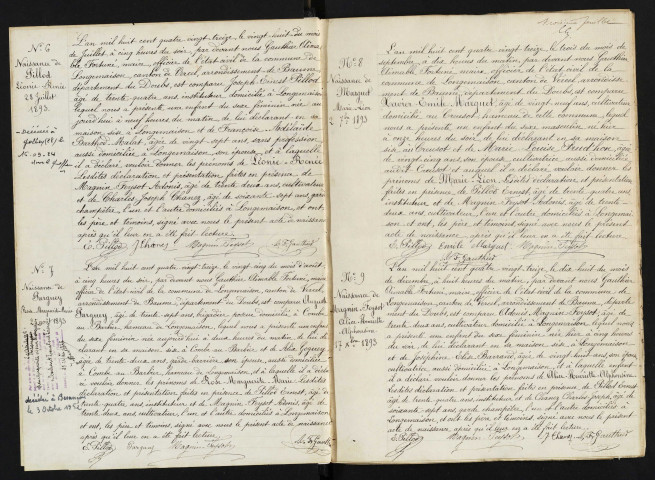 Nº 6
Naissance de
Pillod
Léonie-Renée
28 Juillet
1893.
L'an mil huit cent quatre vingt-treize, le vingt-huit du mois
de Juillet, à cinq heures du soir, par devant nous Gauthier Cléna-
ble Fortuné, maire, officier de l'état civil de la commune de
Longemaison, canton de Vercel, arrondissement de Baume,
département du Doubs, est comparu Joseph Ernest Pillod,
âgé de trente quatre ans, instituteur, domicilié à Longemaison
lequel nous a présenté un enfant du sexe féminin, née au-
jourd'hui à neuf heures du matin, de lui déclarant en sa
maison, sise à Longemaison et de Françoise
âgée de vingt-sept ans, sans profession
aussi domiciliée à Longemaison, son épouse, et à laquelle il
a déclaré vouloir donner les prénoms de Léonie-Renée
Lesdites déclaration et présentation faites en présence de
Magnin Feysot Antonis, âgé de trente deux ans, cultivateur
et de Charles Joseph Chanez, âgé de soixante-sept ans, garde
champêtre, l'un et l'autre domiciliés à Longemaison et ont
les père et témoins, signé avec nous le présent acte de naissance
après qu'il leur en a été fait lecture.
E. Pillod J. Chanez Magnin Feysot
Nº 7
Naissance de
Sarguey
Rose Marguerite Marie
1893
L'an mil huit cent quatre vingt-treize, le vingt cinq du mois d'août
à cinq heures du soir, par devant nous Gauthier Clénable Fortuné, maire
officier de l'état civil de la commune de Longemaison, canton de Vercel,
arrondissement de Baume, département du Doubs, est comparu
Sarguey, âgé de trente-sept ans, brigadier poseur, domicilié à Combe
au Barbier, hameau de Longemaison, lequel nous a présenté un enfant
du sexe féminin née aujourd'hui à deux heures du matin, de lui dé-
clarant et en sa maison, sise à Combe au Barbier
âgée de trente deux ans, garde barrière, son épouse, aussi domiciliée à
Combe au Barbier, hameau de Longemaison, et à laquelle il a décla-
ré vouloir donner les prénoms de Rose Marguerite Marie, lesdites
déclaration et présentation faites en présence de Pillod Ernest, âgé de trente
quatre ans, instituteur, et de Magnin Feysot Antonis, âgé de
trente deux ans, cultivateur, l'un et l'autre domiciliés à Longemaison
et ont, les père et témoins, signé avec nous le présent acte de naissance
après qu'il leur en a été fait lecture.
E. Pillod Sarguey Magnin Feysot
Nº 8
Naissance de
Marguet
Marie Léon
2 7bre 1893
L'an mil huit cent quatre vingt treize, le trois du mois de
septembre, à dix heures du matin, par devant nous Gauthier
Clénable Fortuné, maire, officier de l'état civil de la
commune de Longemaison, canton de Vercel, arrondisse-
ment de Baume, département du Doubs, est comparu
Xavier Emile Marguet, âgé de vingt neuf ans, cultivateur
domicilié au Creusot, hameau de Longemaison, lequel
nous a présenté un enfant du sexe masculin, né hier
à onze heures du soir, de lui déclarant en sa maison
sise au Creusot et de Marie Louise
âgée de vingt-cinq ans, son épouse, cultivatrice, aussi domiciliée
audit Creusot et auquel il a déclaré vouloir donner les
prénoms de Marie Léon. Lesdites déclaration et présentation
faites en présence de Pillod Ernest, âgé de trente quatre ans
instituteur et de Magnin Feysot Antonis, âgé de trente-
deux ans, cultivateur, l'un et l'autre domiciliés à Longemai-
son, et ont, les père et témoins, signé avec nous le présent
acte de naissance après qu'il leur en a été fait lecture.
E. Pillod Emile Marguet Magnin Feysot
Gauthier
Nº 9
Naissance de
Magnin-Feysot
17 Xbre 1893
L'an mil huit cent quatre vingt-treize, le dix huit du mois
de décembre, à huit heures du matin, par devant nous Gauthier
Clénable Fortuné, maire, officier de l'état civil de la commune de
Longemaison, canton de Vercel, arrondissement de Baume, départe-
ment du Doubs, est comparu Antonis Magnin-Feysot, âgé de
trente deux ans, cultivateur, domicilié à Longemaison, lequel nous a
présenté un enfant du sexe féminin, née hier, à cinq heures du
soir, de lui déclarant en sa maison, sise à Longemaison
et de Joséphine, âgée de vingt huit ans, son épouse,
cultivatrice, aussi domiciliée à Longemaison, et à laquelle
il a déclaré vouloir donner les prénoms de
Lesdites déclaration et présentation faites en présence de Pillod Ernest,
âgé de trente quatre ans, instituteur et de Chanez Charles Joseph, âgé de
soixante-sept ans, garde champêtre, l'un et l'autre domiciliés à
Longemaison et ont, les père et témoins, signé avec nous le présent
acte de naissance, après qu'il leur en a été fait lecture.
E. Pillod Magnin Feysot J. Chanez Gauthier